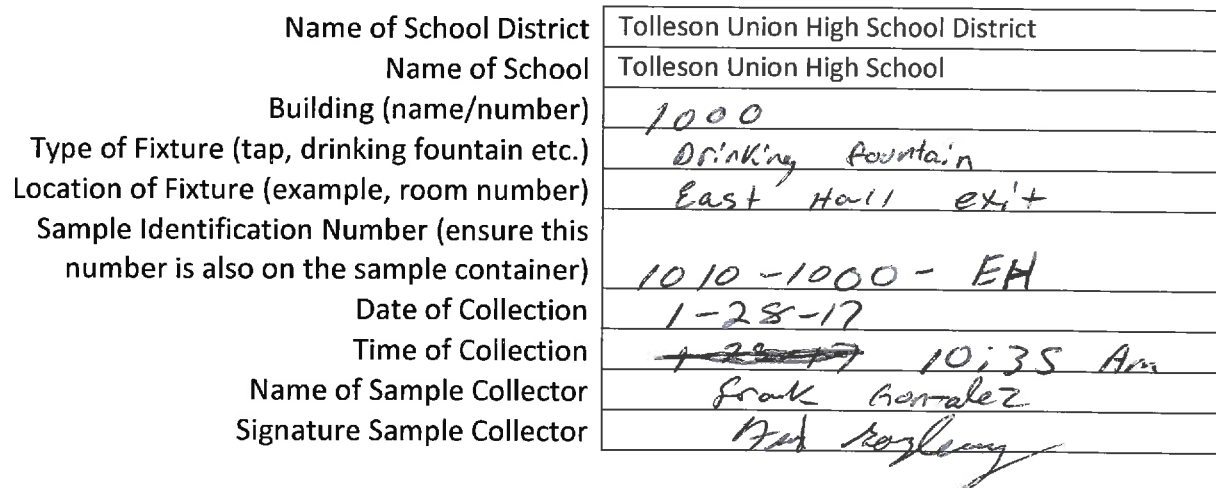 Name of School District Tolleson Union High School District
Name of School Tolleson Union High School
Building (name/number) 1000
Type of Fixture (tap, drinking fountain etc.) Drinking fountain
Location of Fixture (example, room number) East Hall exit
Sample Identification Number (ensure this
number is also on the sample container) 1010-1000- EH
Date of Collection 1-28-17
Time of Collection 10:35 Am
Name of Sample Collector Frank Gonzalez
Signature Sample Collector